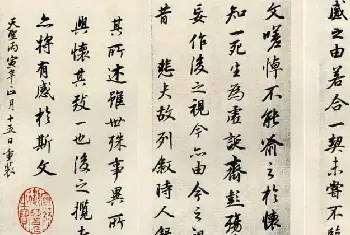 感之由若合一契未嘗不
文嗟悼不能喻之於懷
知一死生為虛誕齊彭殤
妄作後之視今亦由今之視
昔 悲夫故列敘時人錄
其所述雖世殊事異所
興懷其致一也後之攬
亦將有感於斯文
天聖丙寅年正月十五日重裝